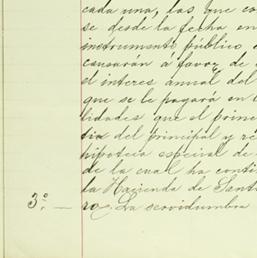 cada una, las que co
se desde la fecha en
instrumento público,
causarán á favor de
el interes anual del
que se le pagará en
lidades que el prime
tia del principal y ré
hipoteca especial de
de la cual ha conti
la Hacienda de Sant
3º — ro. La servidumbra